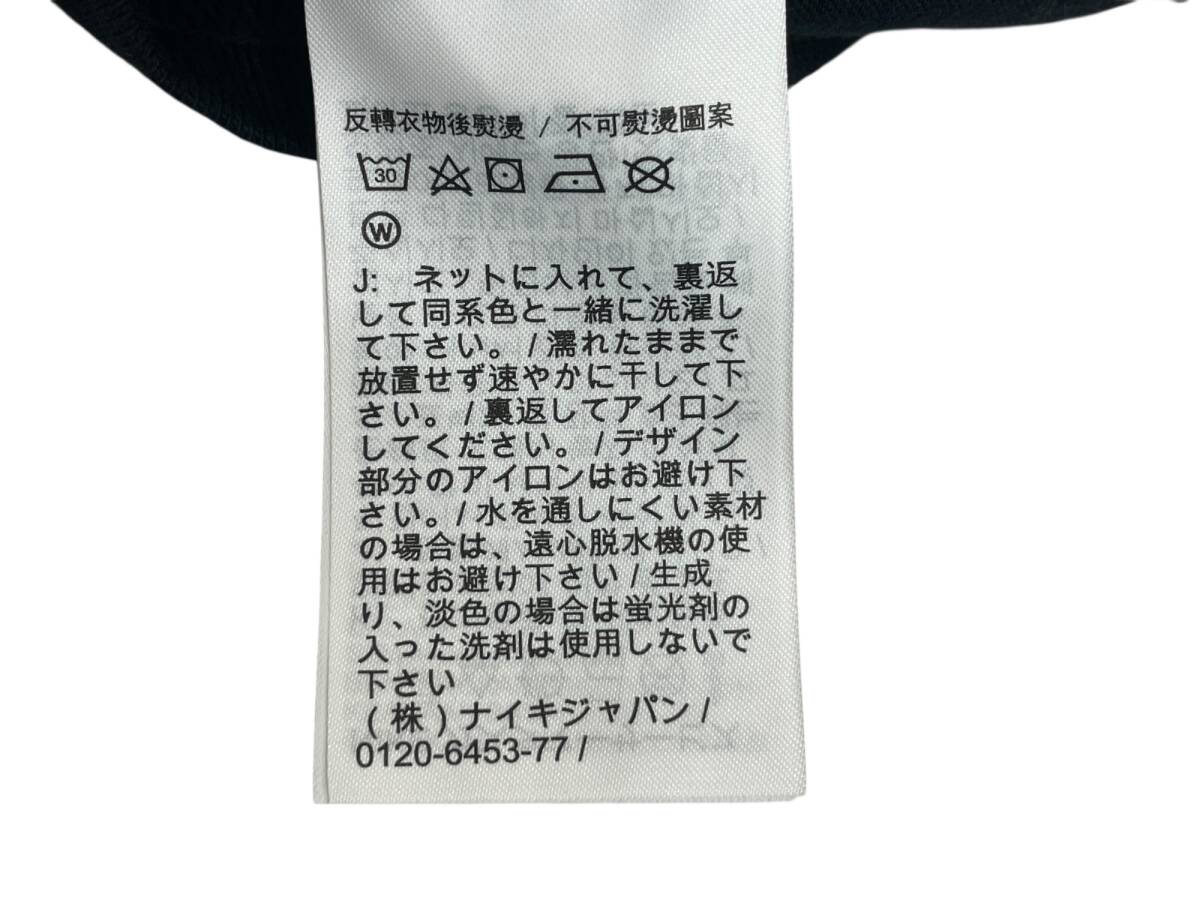 反轉衣物後熨燙 / 不可熨燙圖案
30
W
J: ネットに入れて、裏返
して同系色と一緒に洗濯し
て下さい。/濡れたままで
放置せず速やかに干して下
さい。/裏返してアイロン
してください。/デザイン
部分のアイロンはお避け下
さい。/水を通しにくい素材
の場合は、遠心脱水機の使
用はお避け下さい/生成
り、淡色の場合は蛍光剤の
入った洗剤は使用しないで
下さい
(株)ナイキジャパン/
0120-6453-77 /